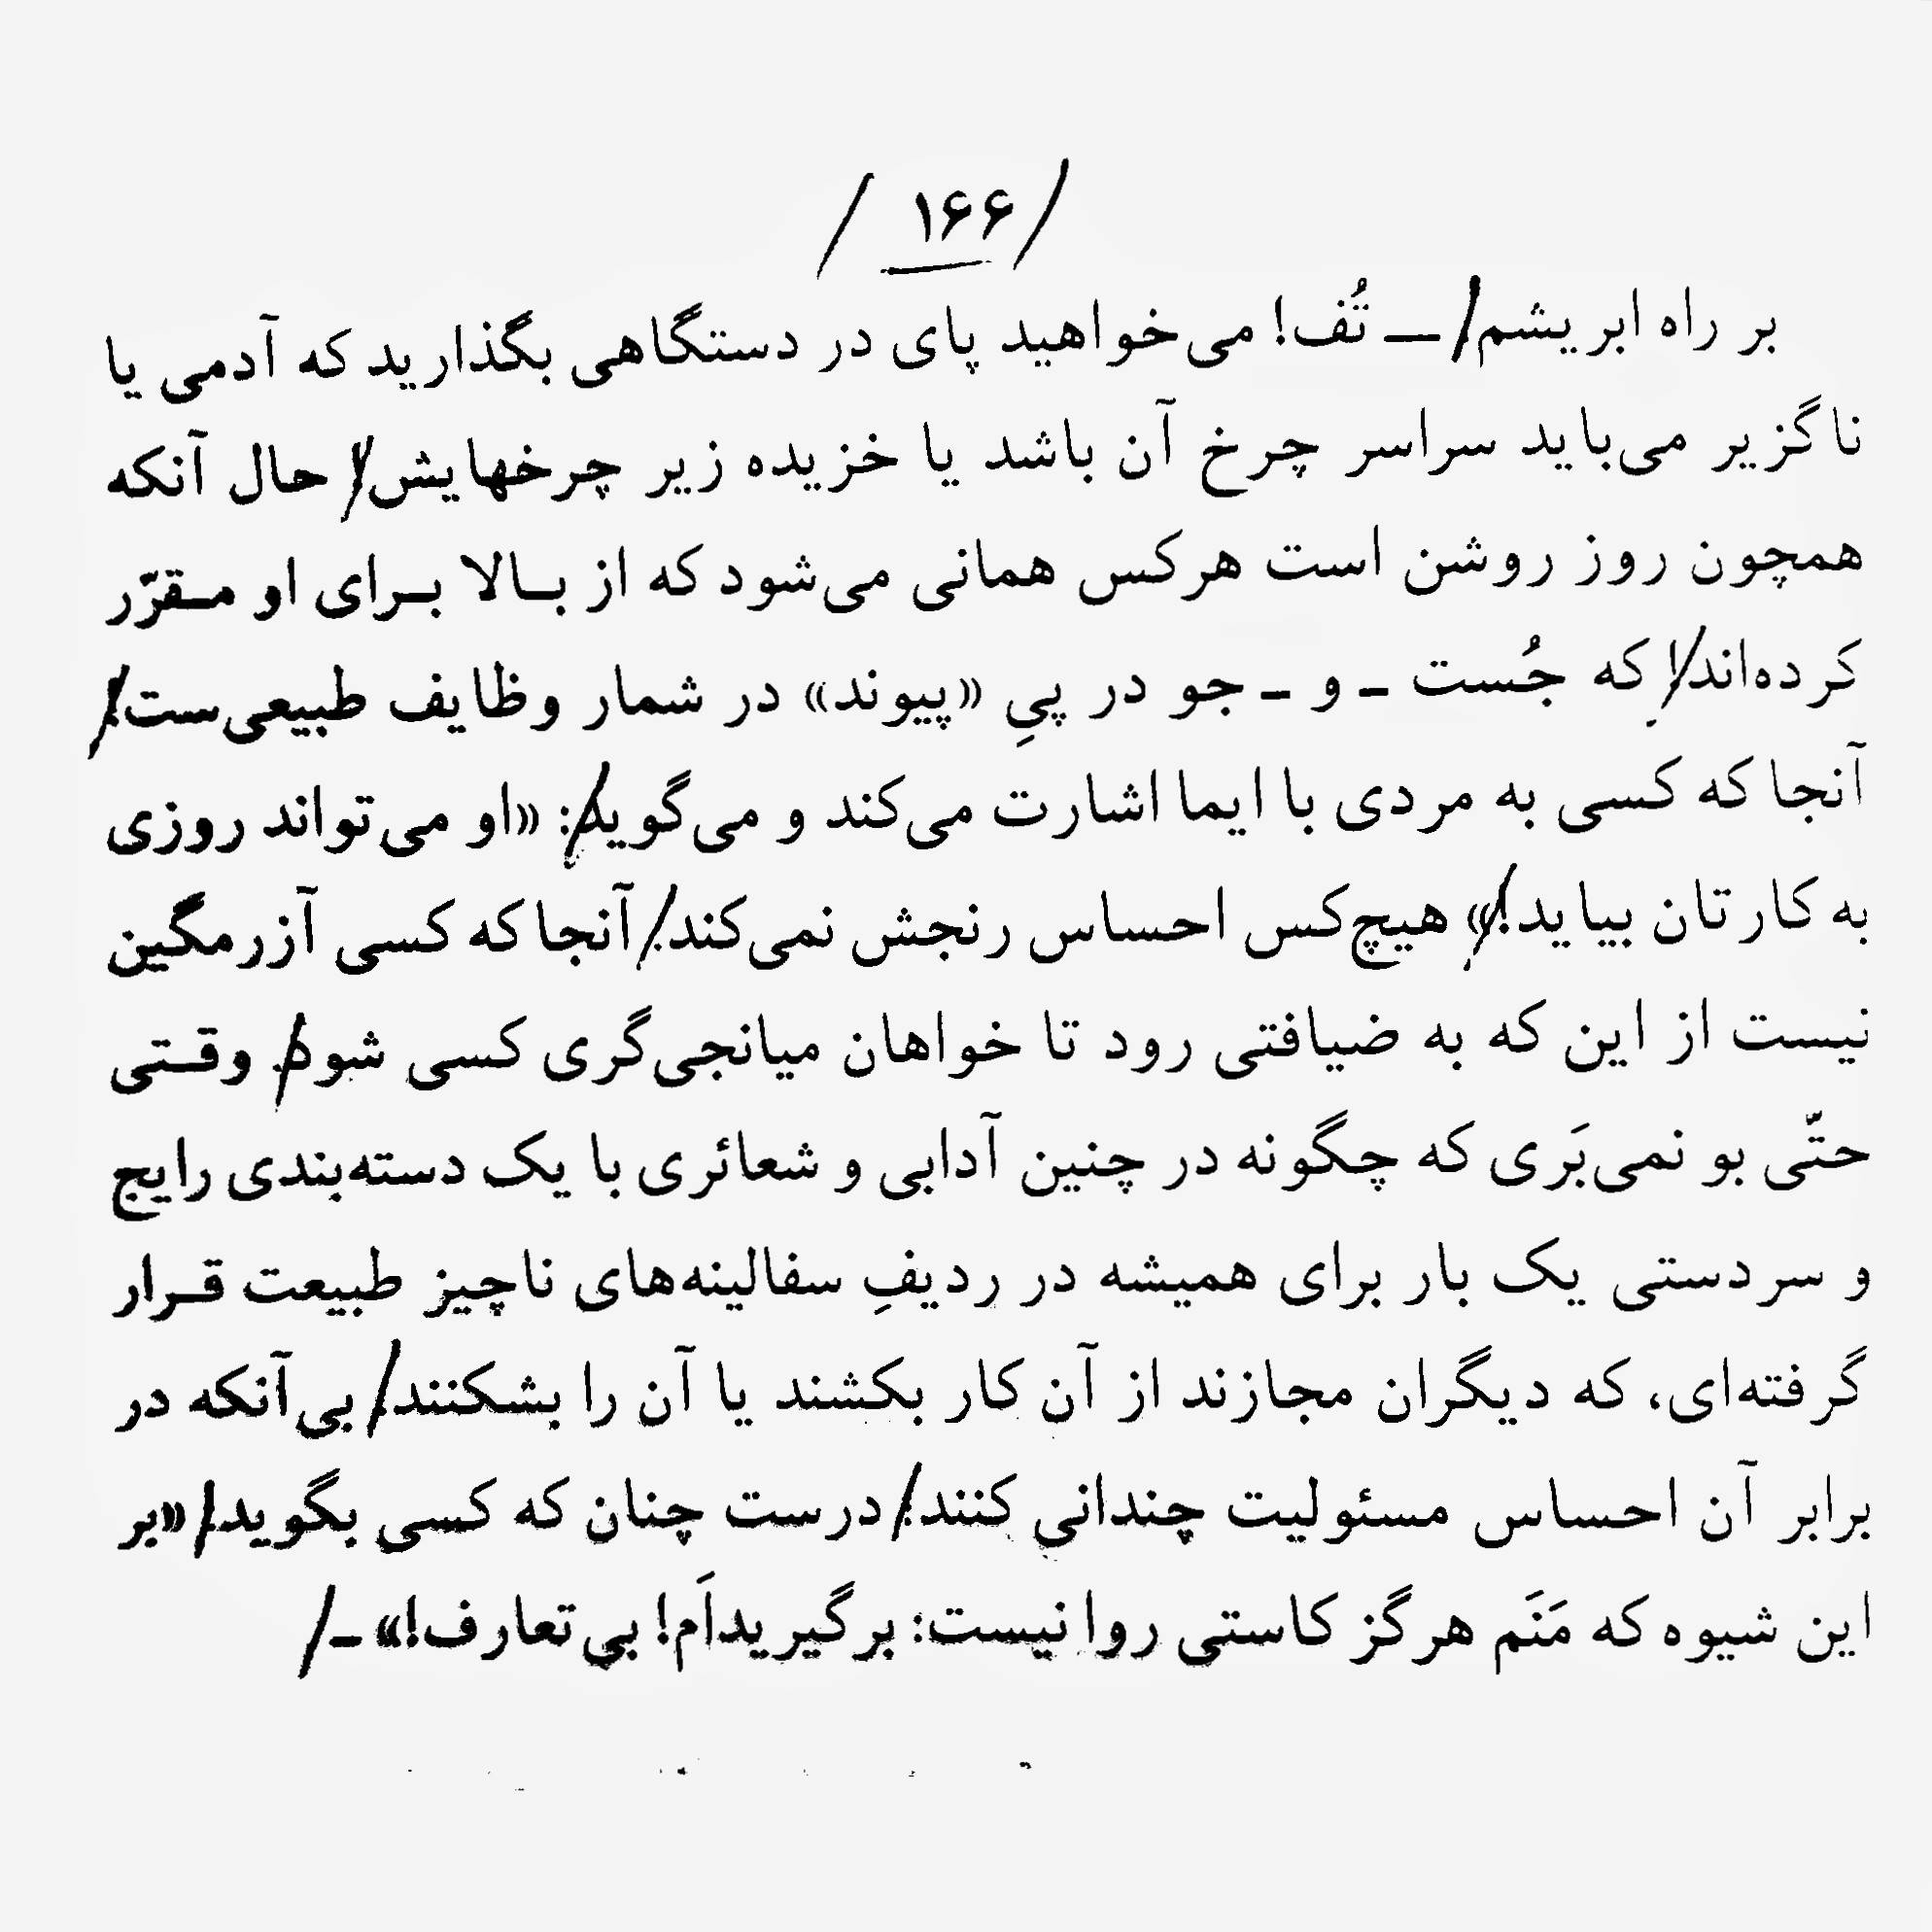 /۱۶۶/
بر راه ابریشم/ — تُف! می‌خواهید پای در دستگاهی بگذارید که آدمی یا
ناگزیر می‌باید سراسر چرخ آن باشد یا خزیده زیر چرخهایش!/ حال آنکه
همچون روز روشن است هرکس همانی می‌شود که از بالا برای او مقرّر
کرده‌اند!/ که جُست - و - جو در پیِ «پیوند» در شمار وظایف طبیعی‌ست!/
آنجا که کسی به مردی با ایما اشارت می‌کند و می‌گوید/: «او می‌تواند روزی
به کارتان بیاید!/» هیچ‌کس احساس رنجش نمی‌کند/. آنجا که کسی آزرمگین
نیست از این که به ضیافتی رود تا خواهان میانجی‌گری کسی شود/. وقتی
حتّی بو نمی‌بَری که چگونه در چنین آدابی و شعائری با یک دسته‌بندی رایج
و سردستی یک بار برای همیشه در ردیفِ سفالینه‌های ناچیز طبیعت قرار
گرفته‌ای، که دیگران مجازند از آن کار بکشند یا آن را بشکنند/. بی‌آنکه در
برابر آن احساس مسئولیت چندانی کنند/. درست چنان که کسی بگوید/: «بر
این شیوه که مَنَم هرگز کاستی روا نیست: برگیریداَم! بی‌تعارف!» -/